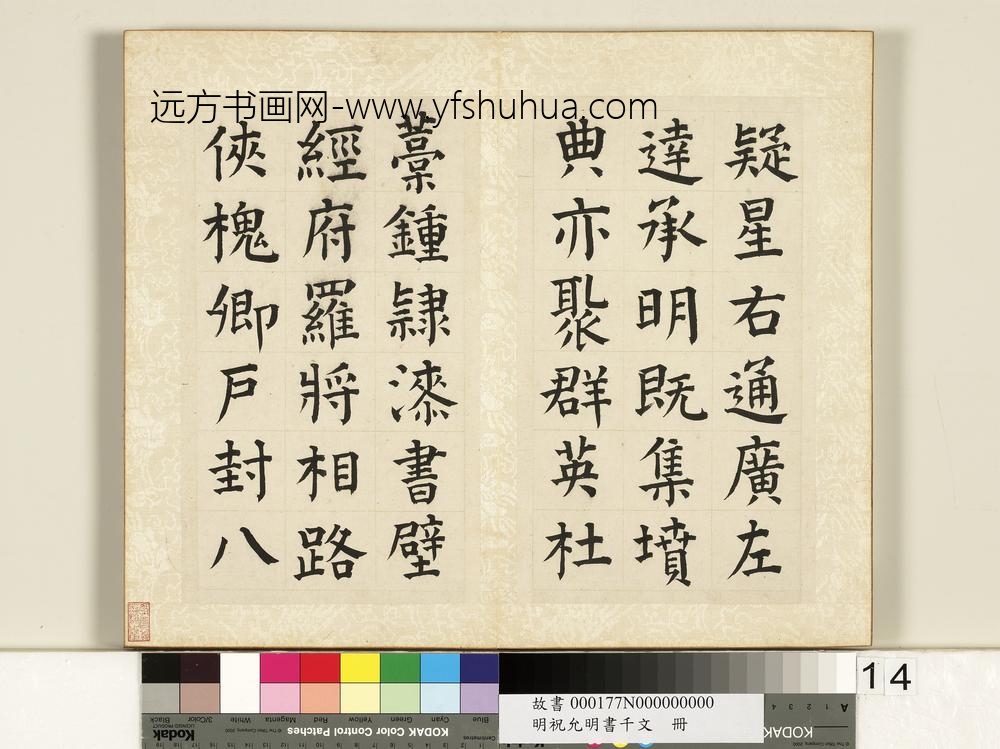 远方书画网-www.yfshuhua.com
疑星右通廣左
達承明既集墳
典亦聚群英杜
藁鍾隸漆書壁
經府羅將相路
俠槐卿戶封八
14
故書 000177N000000000
明祝允明書千文 冊
Blue Cyan Green Yellow Red Magenta White 3/Color Black
KODAK Color Control Patches
Kodak
LICENSED PRODUCT
Centimetres
KODAK
A 1 2 3 4